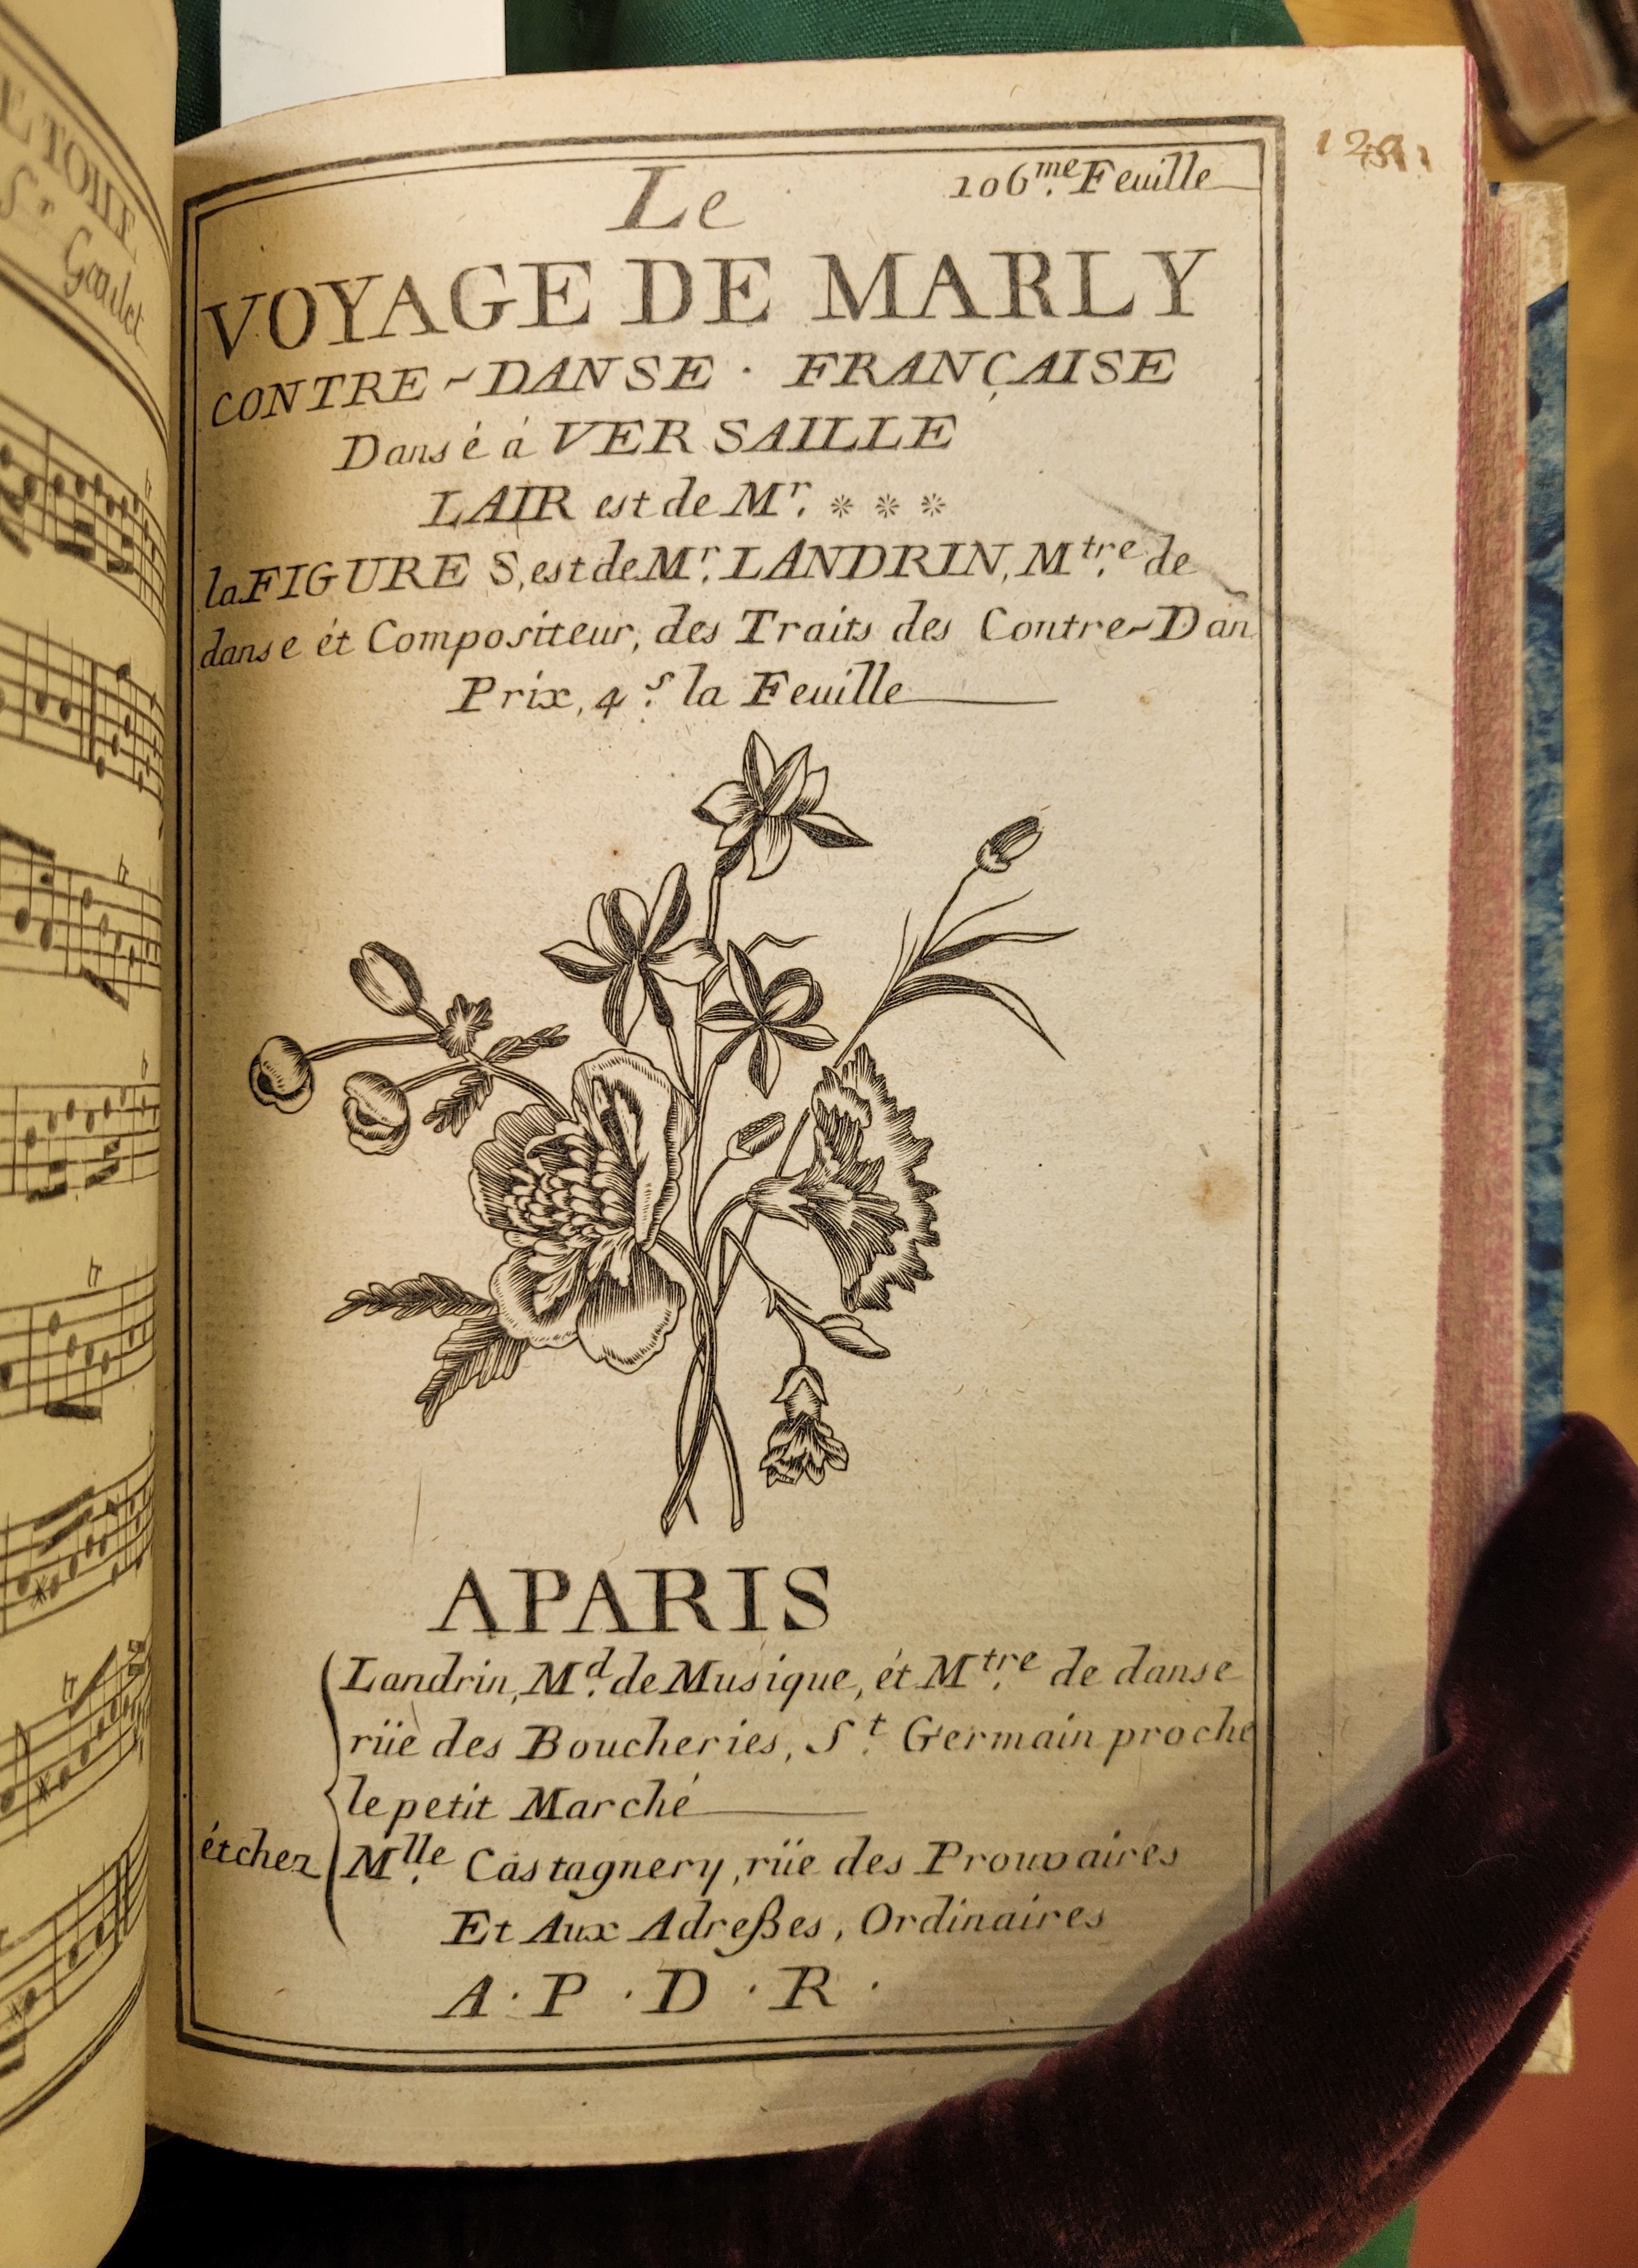 ETOILE
Sr Goulet
106.me Feuille
Le
VOYAGE DE MARLY
CONTRE-DANSE · FRANÇAISE
Dansé á VERSAILLE
LAIR est de Mr. * * *
la FIGURE S, est de Mr. LANDRIN, Mtre. de
danse ét Compositeur, des Traits des Contre-Dan
Prix, 4.s la Feuille
APARIS
Landrin, Md. de Musique, ét Mtre. de danse
rüe des Boucheries, St. Germain proche
le petit Marché
étchez Mlle. Castagnery, rüe des Prouvaires
Et Aux Adreßes, Ordinaires
A · P · D · R ·